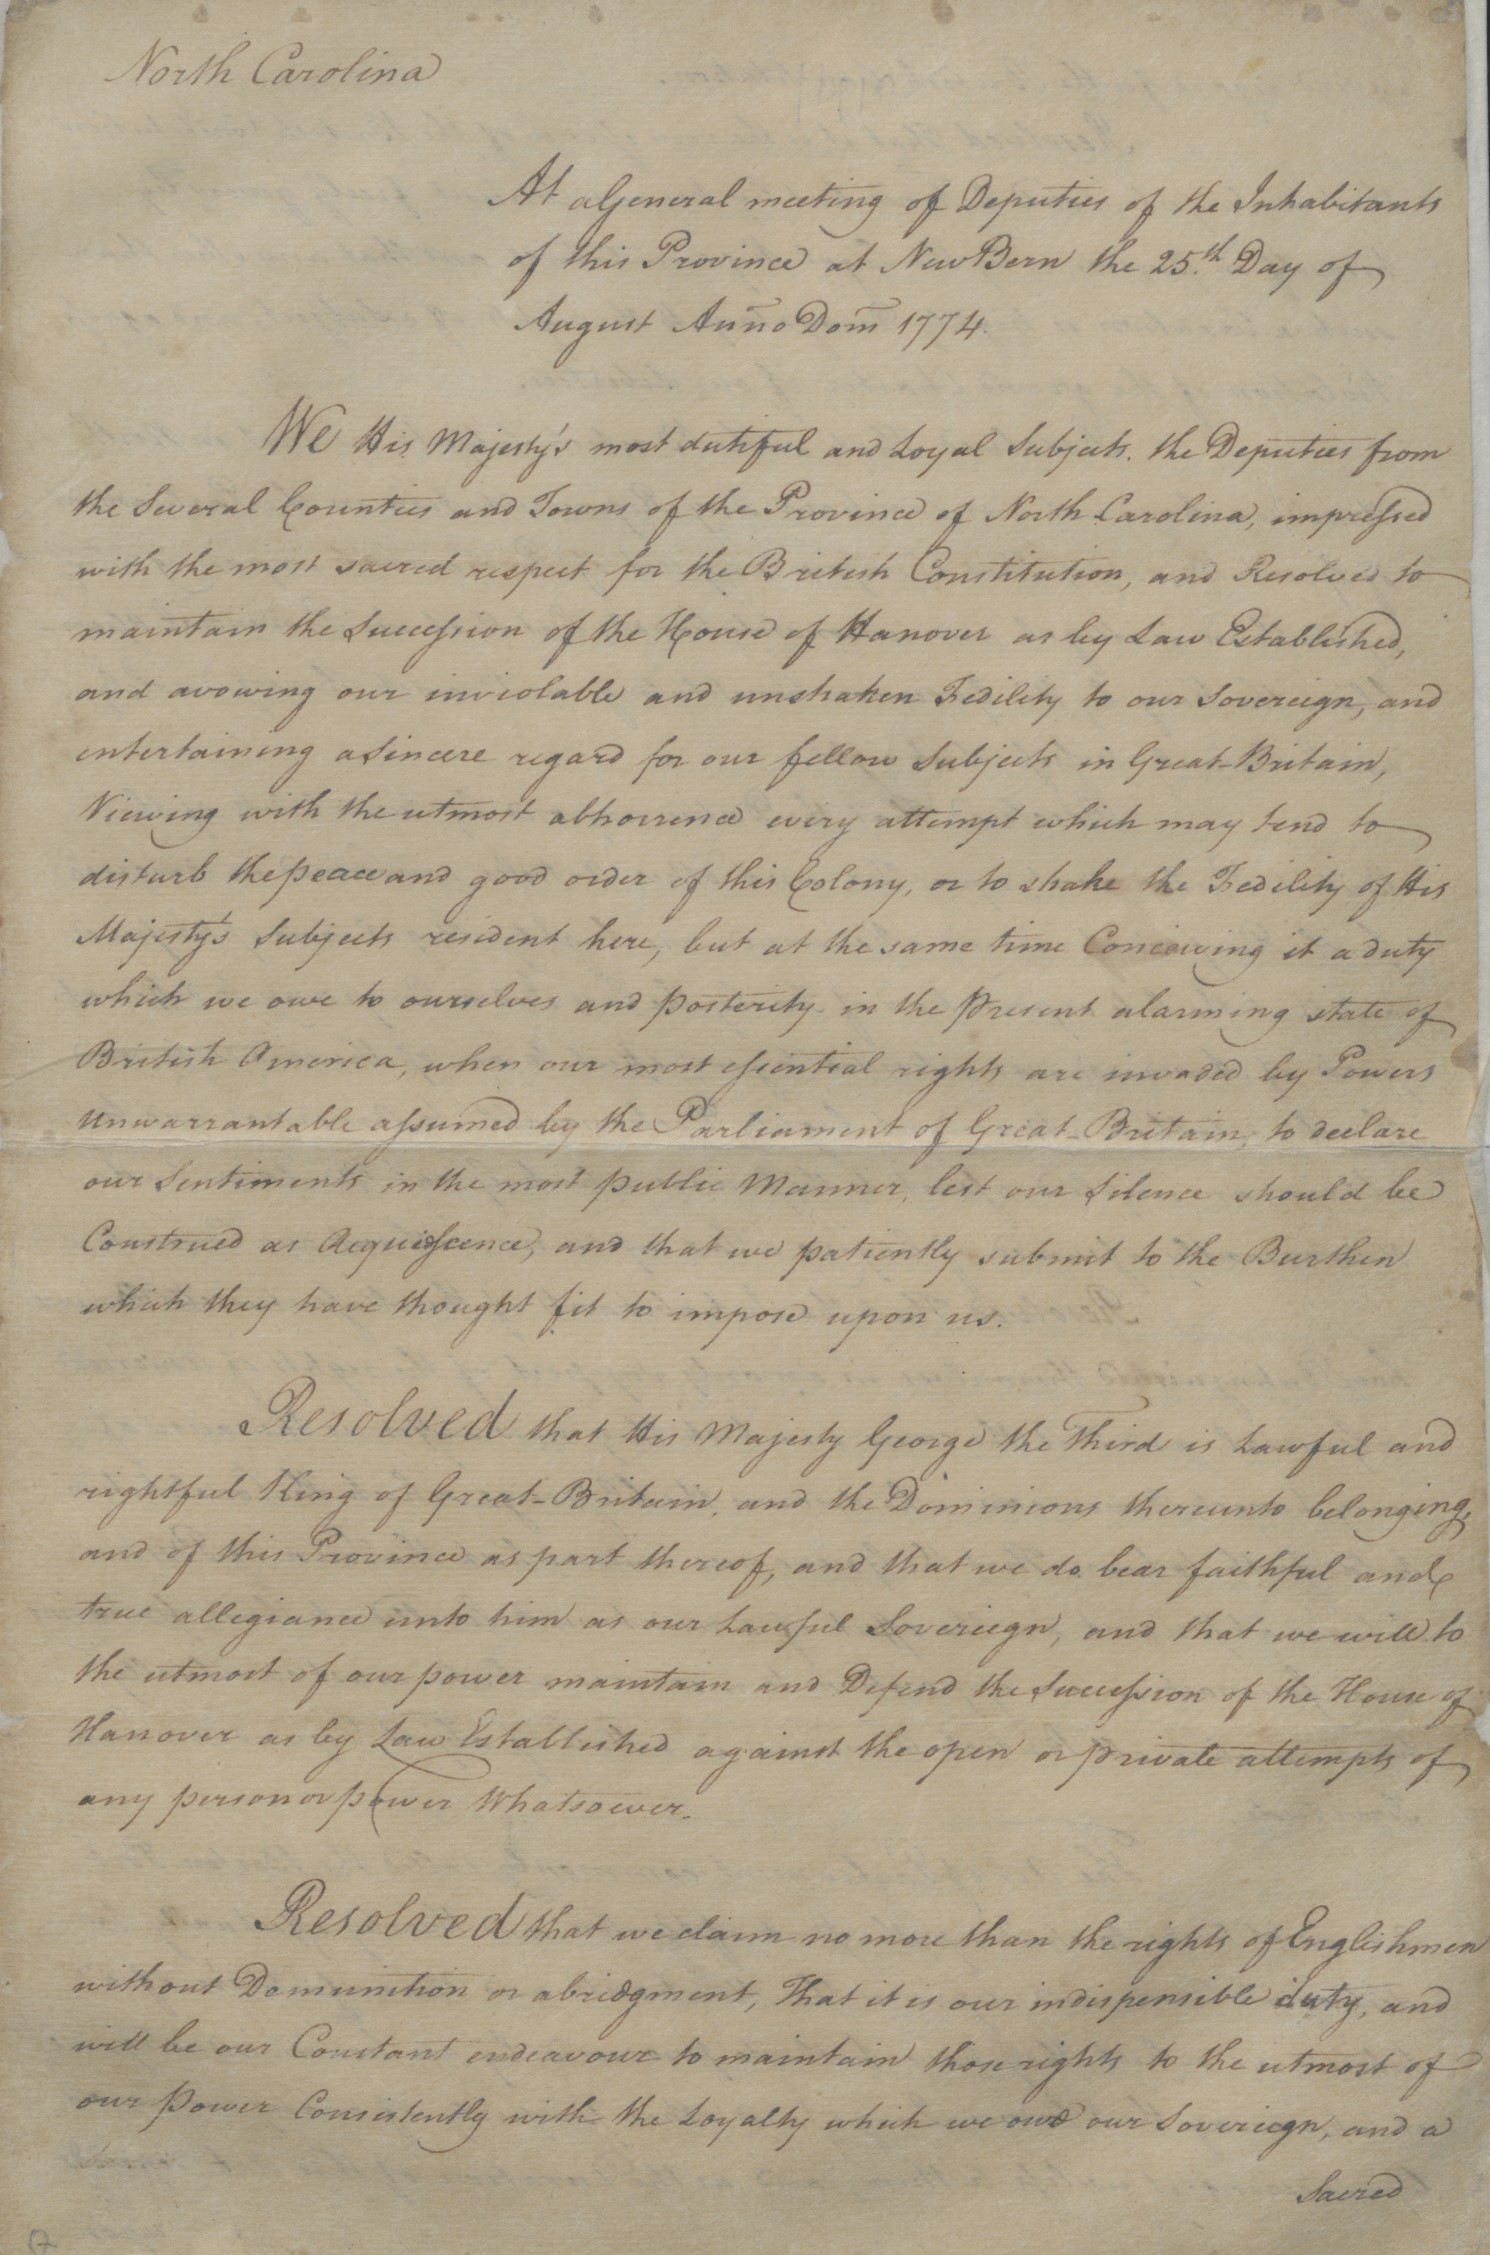 North Carolina
At a General meeting of Deputies of the Inhabitants
of this Province at New Bern the 25.th Day of
August Anno Dom 1774.
We His Majesty's most dutiful and Loyal Subjects. the Deputies from
the Several Counties and Towns of the Province of North Carolina, impressed
with the most sacred respect for the British Constitution, and Resolved to
maintain the Succession of the House of Hanover as by Law Established,
and avowing our inviolable and unshaken Fedility to our Sovereign, and
entertaining a Sincere regard for our fellow Subjects in Great-Britain,
Viewing with the utmost abhorrence every attempt which may tend to
disturb the peace and good order of this Colony, or to shake the Fedility of His
Majesty's Subjects resident here, but at the same time Conceiving it a duty
which we owe to ourselves and posterity in the present alarming state of
British America, when our most essential rights are invaded by Powers
unwarrantable assumed by the Parliament of Great-Britain, to declare
our Sentiments in the most public Manner, lest our Silence should be
Construed as Acquiescence, and that we patiently submit to the Burthen
which they have thought fit to impose upon us.
Resolved that His Majesty George the Third is Lawful and
rightful King of Great-Britain, and the Dominions thereunto belonging,
and of this Province as part thereof, and that we do bear faithful and
true allegiance unto him as our Lawful Sovereign, and that we will to
the utmost of our power maintain and Defend the Succession of the House of
Hanover as by Law Established against the open or private attempts of
any person or power Whatsoever.
Resolved that we claim no more than the rights of Englishmen
without Domunition or abridgment, That it is our indispensible duty, and
will be our Constant endeavour to maintain those rights to the utmost of
our Power Consistently with the Loyalty which we owe our Sovereign, and a
Sacred